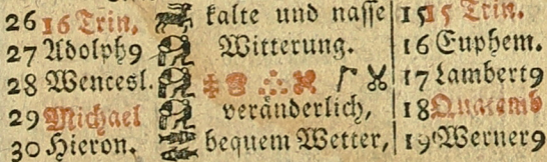 26 16 Trin. kalte und nasse 15 15 Trin.
27 Adolph9 Witterung. 16 Euphem.
28 Wencesl. 17 Lambert9
29 Michael veränderlich, 18 Quatemb
30 Hieron. bequem Wetter, 19 Werner9